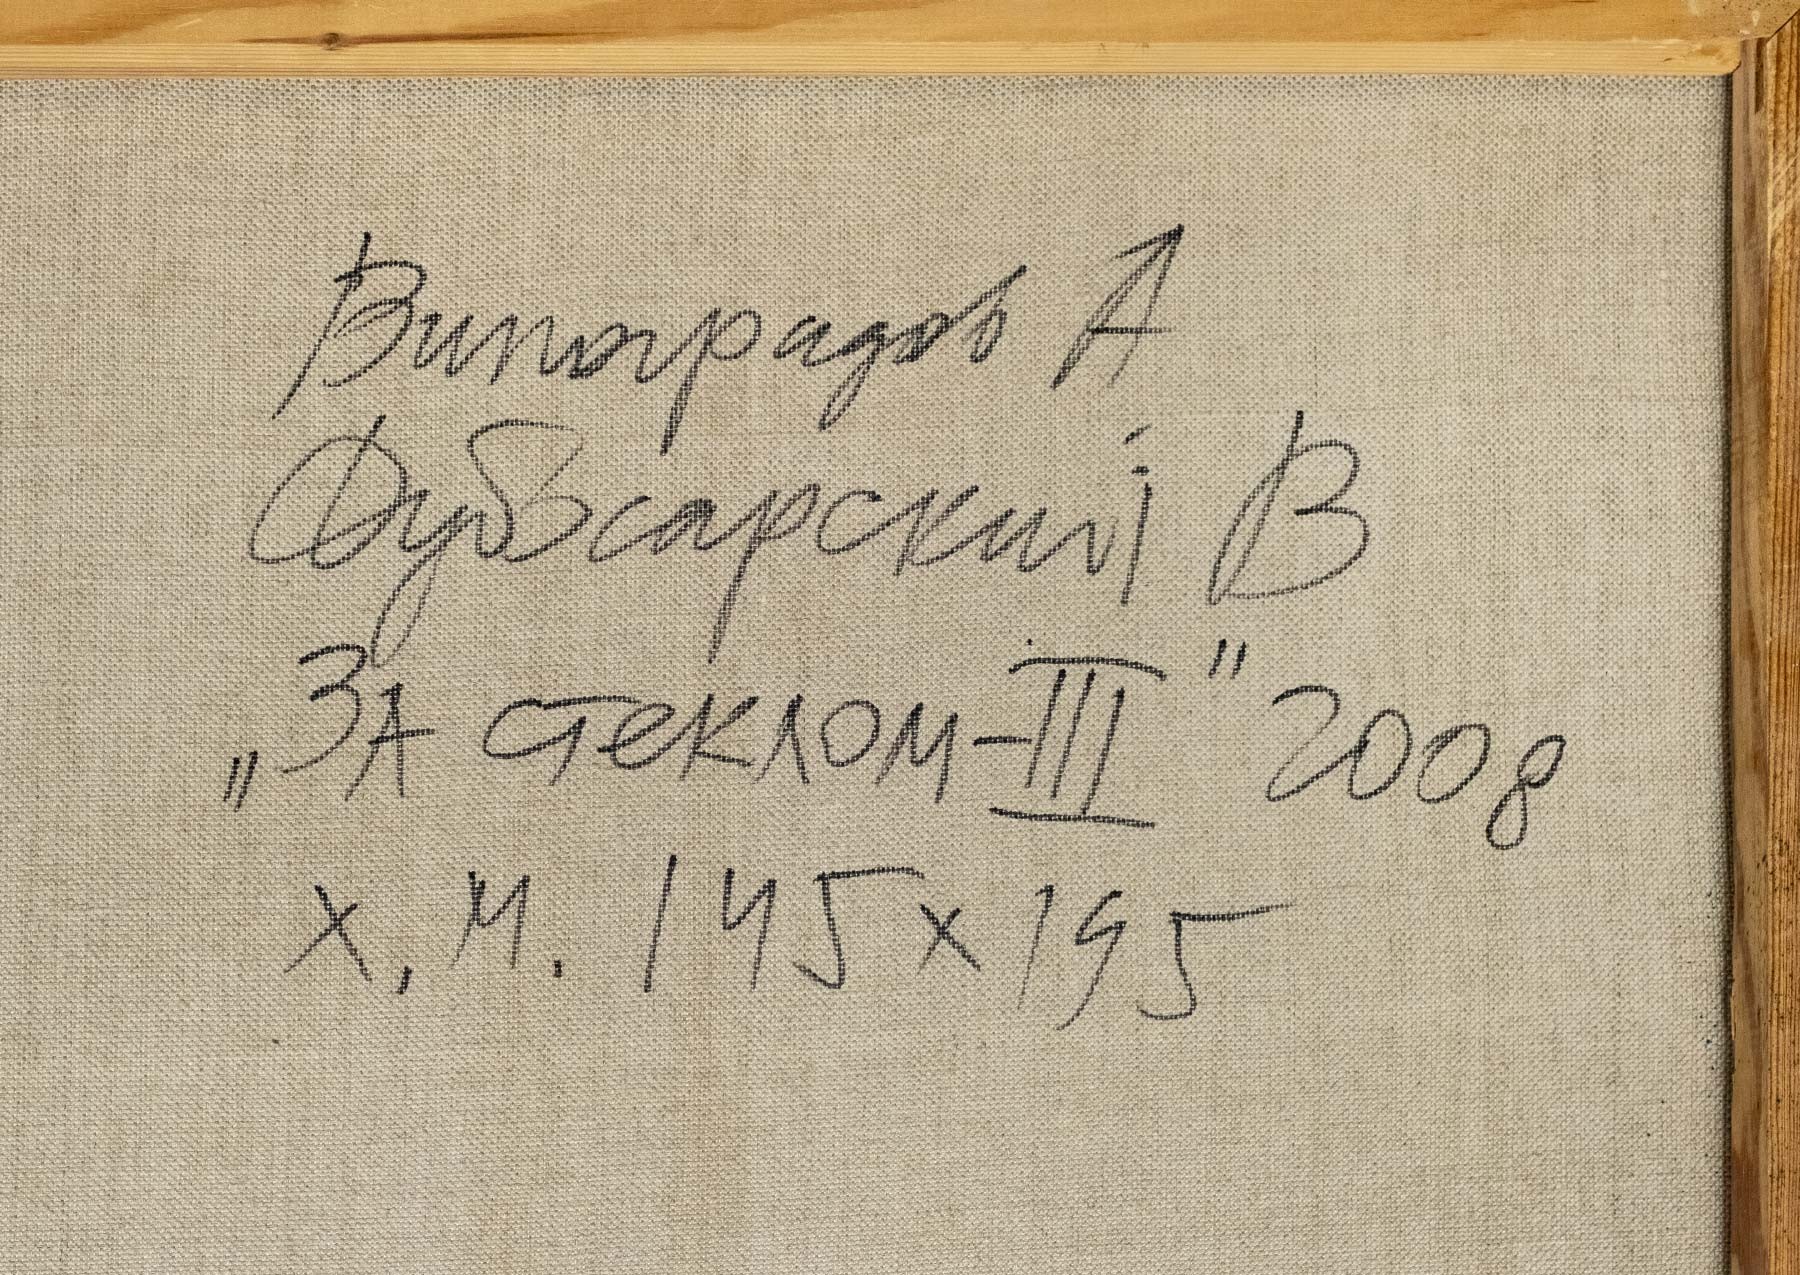 Виноградов А
Дубосарский В
„За стеклом-III" 2008
х.м. 145х195